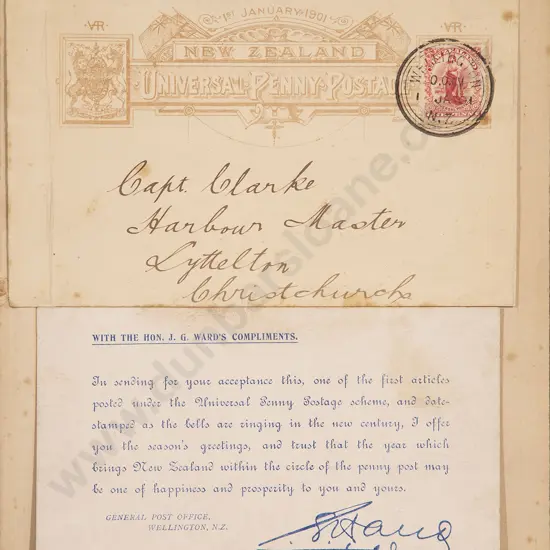 1ST JANUARY 1901
VR VR
NEW ZEALAND
UNIVERSAL PENNY POSTAGE
Capt. Clarke
Harbour Master
Lyttelton
Christchurch
WITH THE HON. J. G. WARD'S COMPLIMENTS.
In sending for your acceptance this, one of the first articles
posted under the Universal Penny Postage scheme, and date-
stamped as the bells are ringing in the new century, I offer
you the season's greetings, and trust that the year which
brings New Zealand within the circle of the penny post may
be one of happiness and prosperity to you and yours.
GENERAL POST OFFICE,
WELLINGTON, N.Z.
J. G. Ward